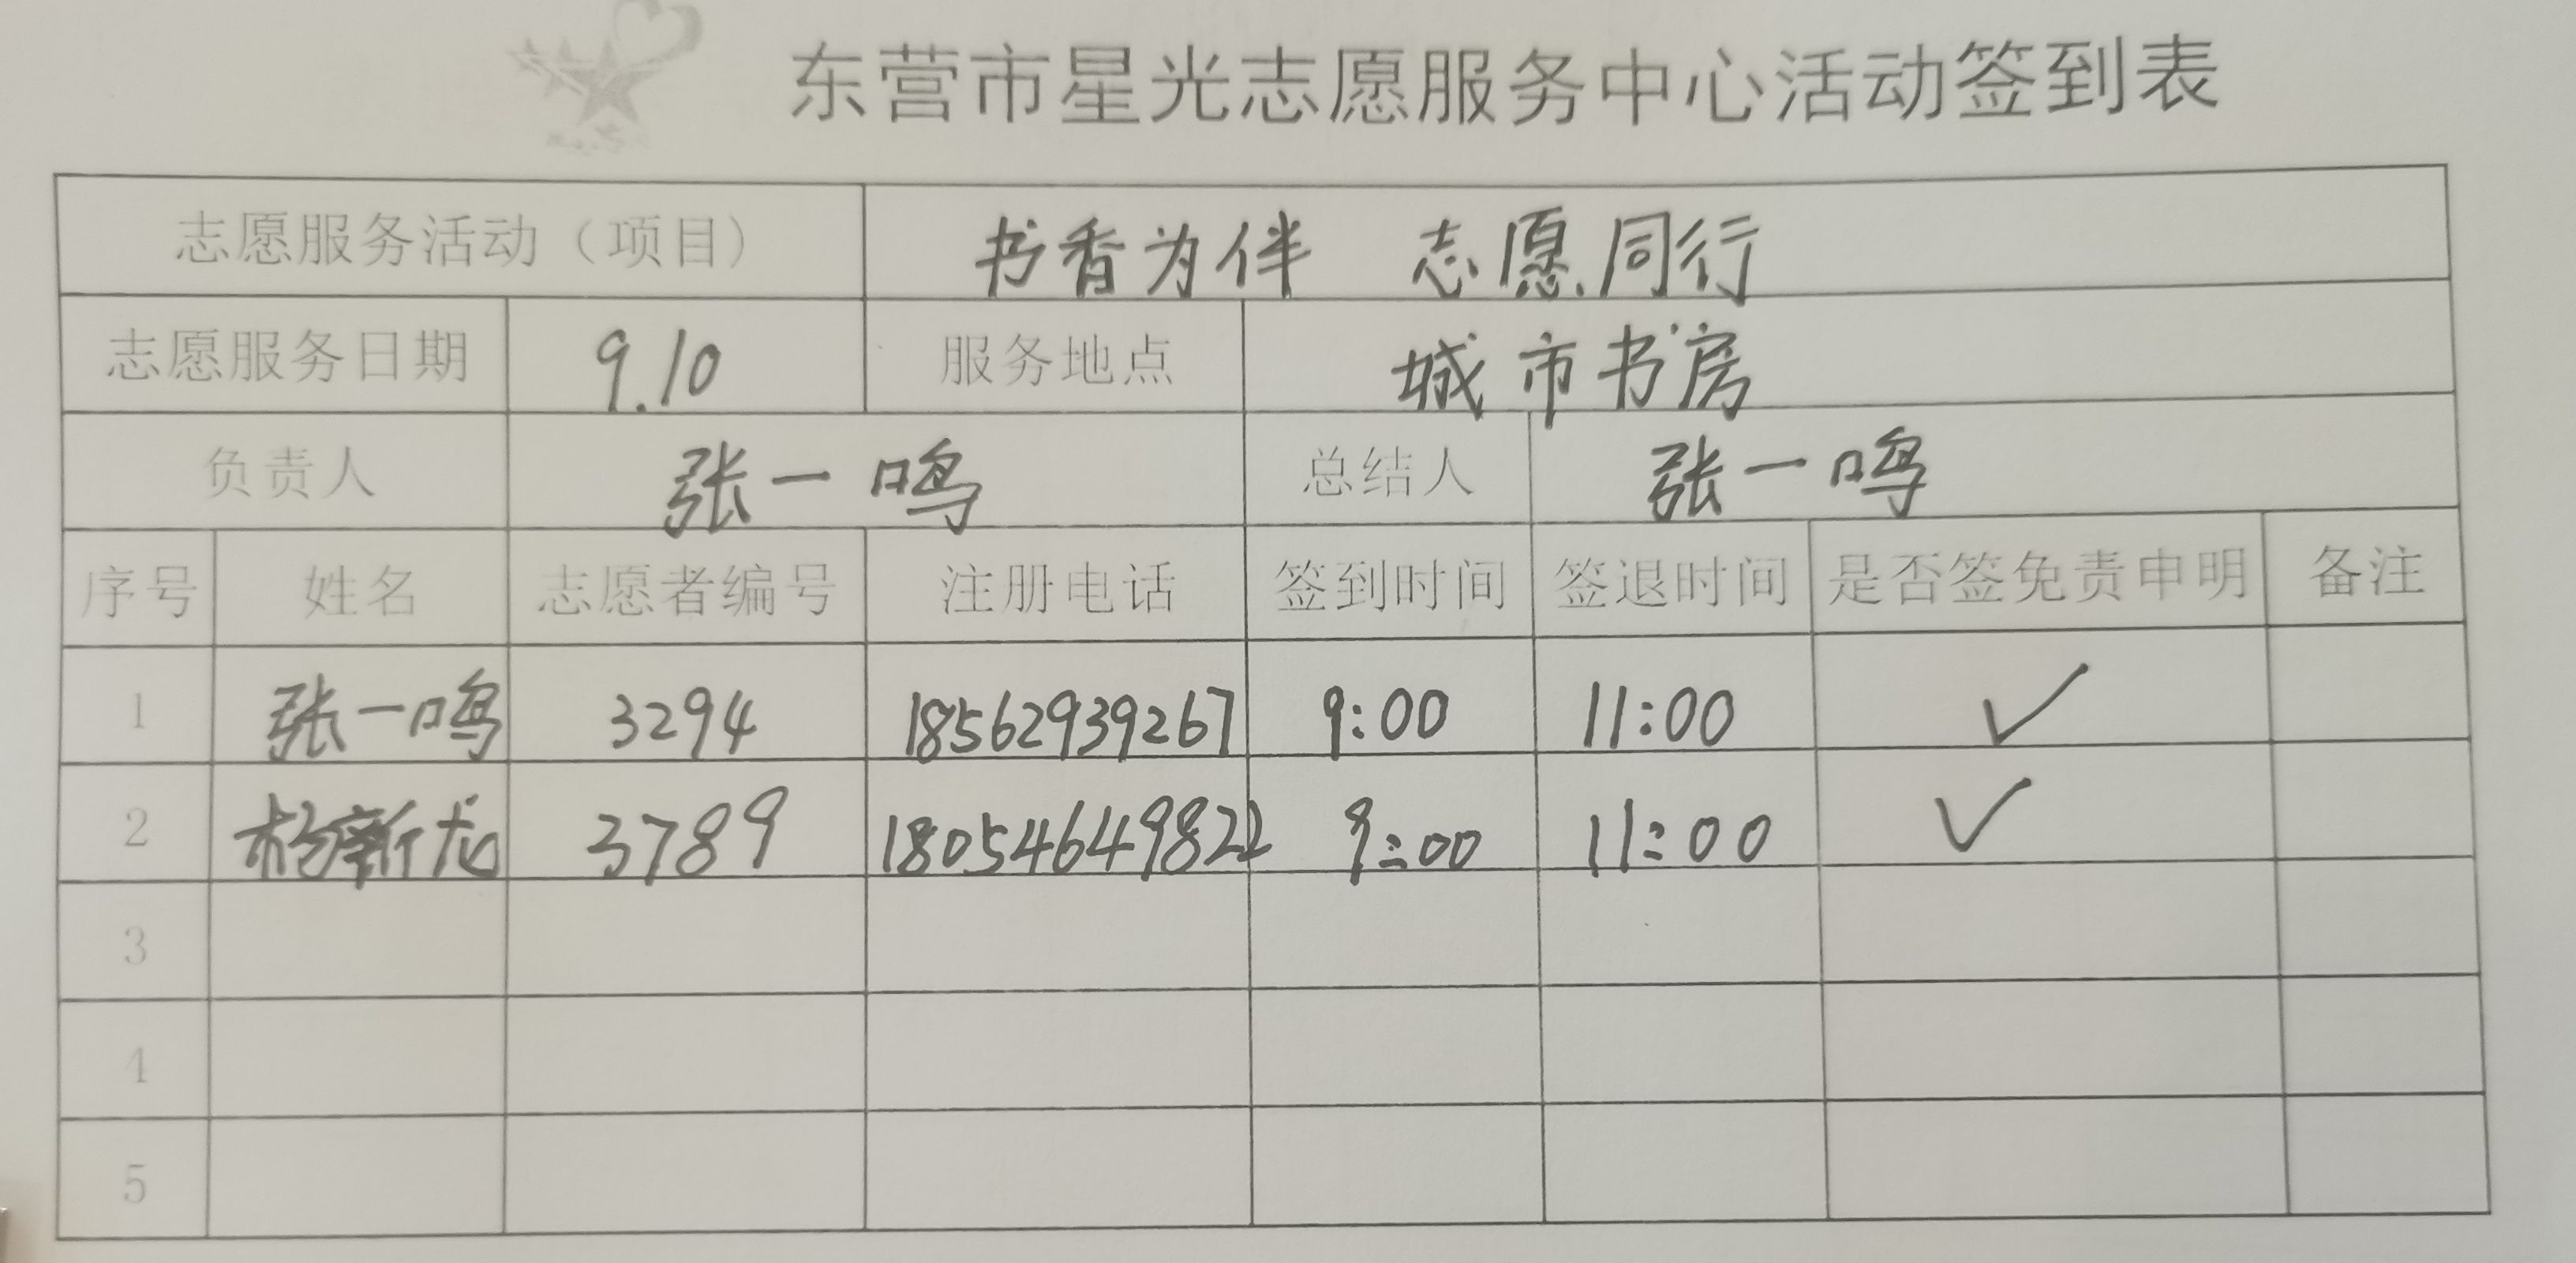 东营市星光志愿服务中心活动签到表
志愿服务活动（项目） 书香为伴 志愿同行
志愿服务日期 9.10 服务地点 城市书房
负责人 张一鸣 总结人 张一鸣
序号 姓名 志愿者编号 注册电话 签到时间 签退时间 是否签免责申明 备注
1 张一鸣 3294 18562939267 9:00 11:00 ✓
2 杨新龙 3789 18054649822 9:00 11:00 ✓
3
4
5